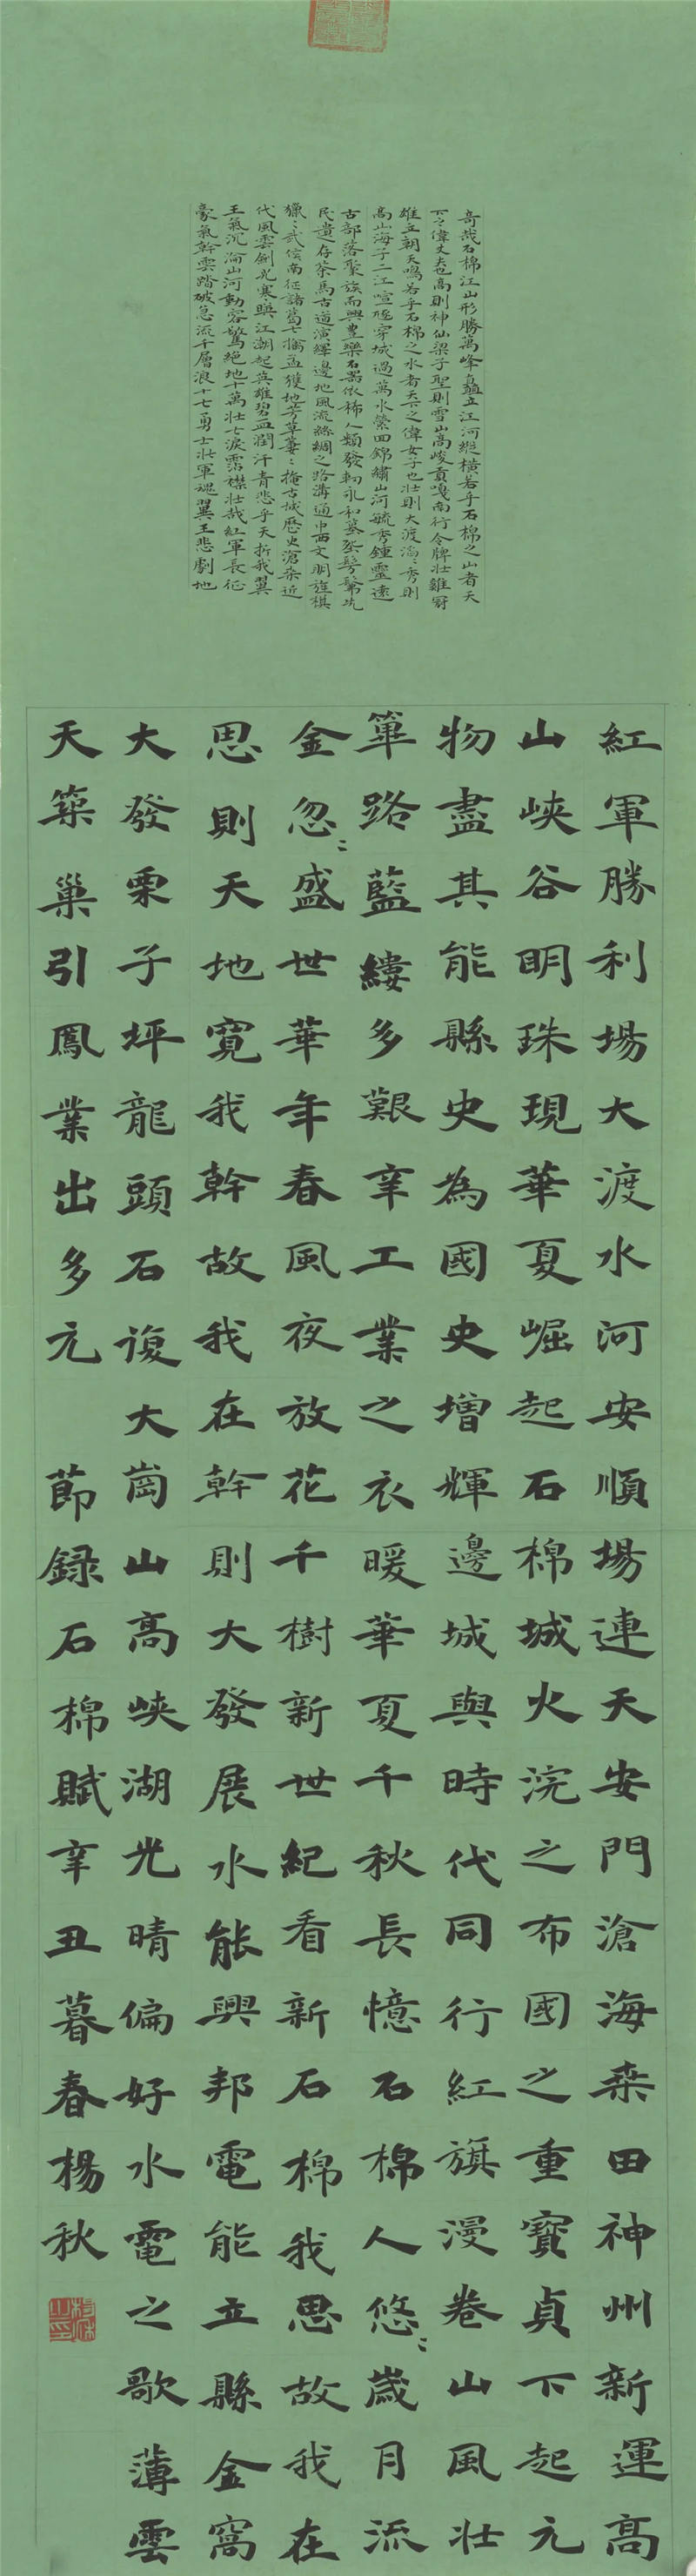 奇哉石棉江山形勝萬峰矗立江河縱橫若乎石棉之山者天
下之偉丈夫也高則神仙梁子聖則雪山高峻貢嘎南行令牌壯雞冠
雄立朝天鳴若乎石棉之水者天下之偉女子也壯則大渡滔〻秀則
高山海子二江喧騰穿城過萬水縈回錦繡山河毓秀鍾靈遠
古部落聚族而興豊樂石器依稀人類發軔永和墓塋髣髴先
民遺存茶馬古道演繹邊地風流絲綢之路溝通中西文明旌棋
獵〻武侯南征諸葛七擒孟獲地芳草萋〻掩古城歷史滄桒近
代風雲劍光寒映江潮起英雄碧血潤汗青悲乎天折我翼
王氣沉淪山河動容驚絕地十萬壯士淚霑襟壯哉紅軍長征
豪氣幹雲踏破急流千層浪十七勇士壯軍魂翼王悲劇地
紅軍勝利場大渡水河安順場連天安門滄海桒田神州新運高
山峽谷明珠現華夏崛起石棉城火浣之布國之重寶貞下起元
物盡其能縣史為國史增輝邊城與時代同行紅旗漫卷山風壯
篳路藍縷多艱辛工業之衣暖華夏千秋長憶石棉人悠〻歲月流
金忽〻盛世華年春風夜放花千樹新世紀看新石棉我思故我在
思則天地寬我幹故我在幹則大發展水能興邦電能立縣金窩
大發栗子坪龍頭石復大崗山高峽湖光晴偏好水電之歌薄雲
天築巢引鳳業出多元 節録石棉賦辛丑暮春楊秋